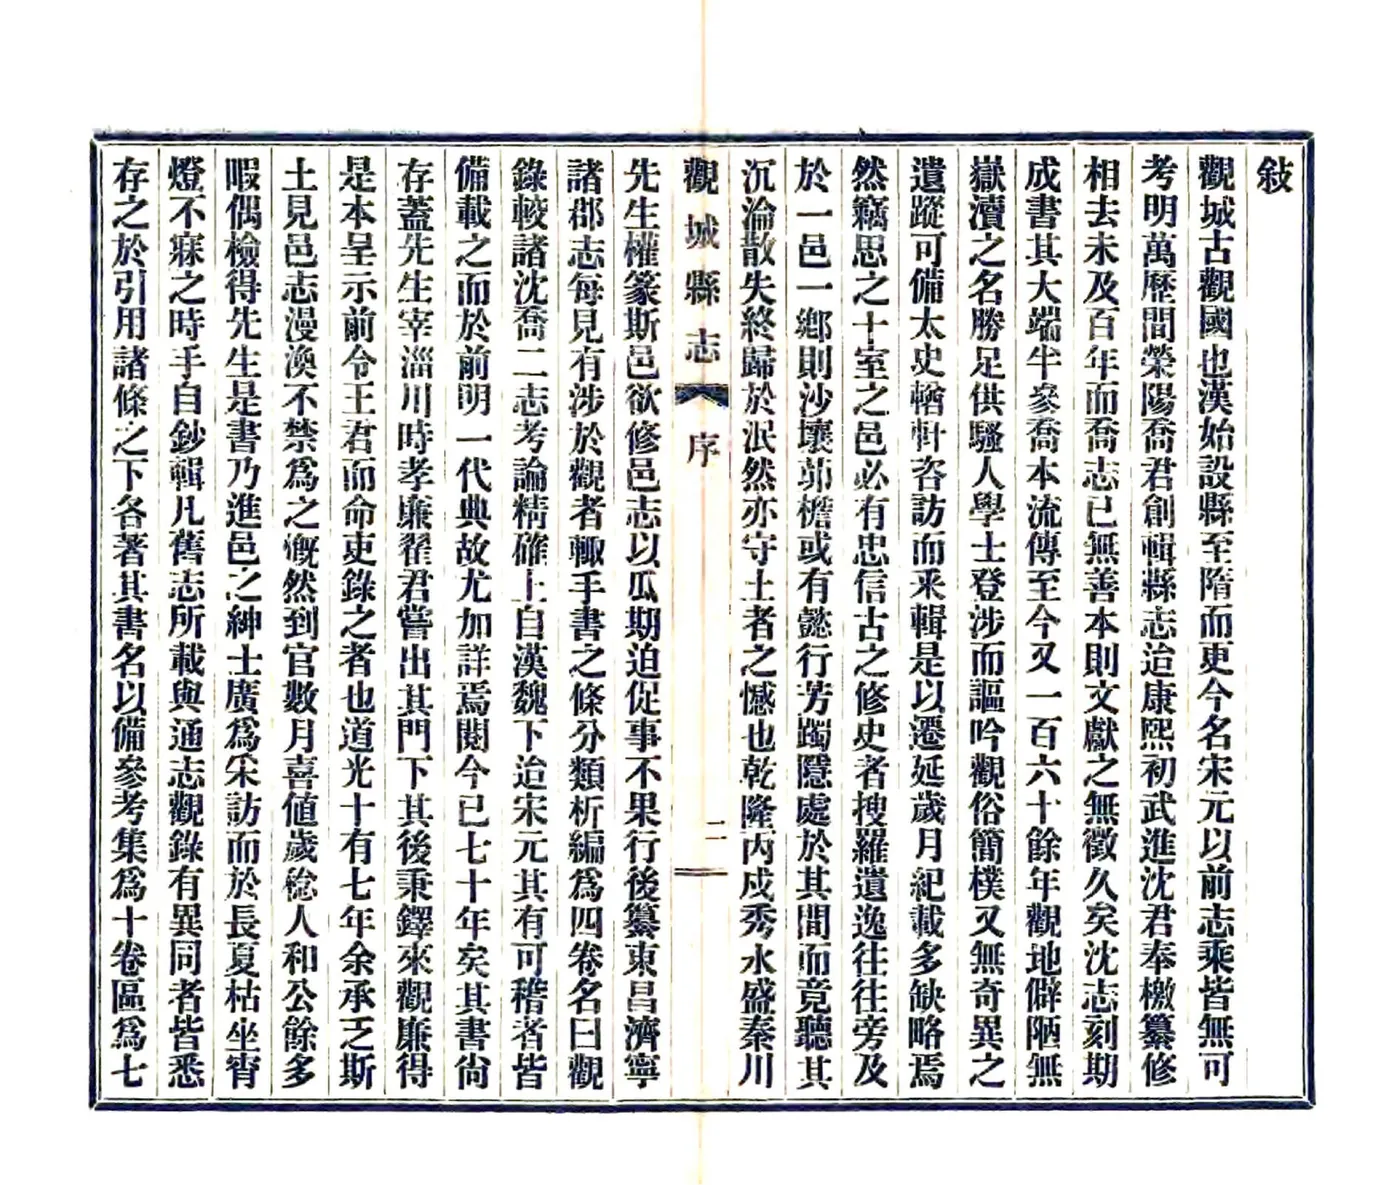 敍
觀城古觀國也漢始設縣至隋而更今名宋元以前志乘皆無可
考明萬歷間榮陽喬君創輯縣志迨康熙初武進沈君奉檄纂修
相去未及百年而喬志已無善本則文獻之無徵久矣沈志刻期
成書其大端半參喬本流傳至今又一百六十餘年觀地僻陋無
嶽瀆之名勝足供騷人學士登涉而謳吟觀俗簡樸又無奇異之
遺蹤可備太史輶軒咨訪而釆輯是以遷延歲月紀載多缺略焉
然竊思之十室之邑必有忠信古之修史者搜羅遺逸往往旁及
於一邑一鄉則沙壤茆檐或有懿行芳躅隱處於其間而竟聽其
沉淪散失終歸於泯然亦守土者之憾也乾隆丙戌秀水盛秦川
觀城縣志 序 二
先生權篆斯邑欲修邑志以瓜期迫促事不果行後纂東昌濟寧
諸郡志每見有涉於觀者輙手書之條分類析編爲四卷名曰觀
錄較諸沈喬二志考論精確上自漢魏下迨宋元其有可稽者皆
備載之而於前明一代典故尤加詳焉閱今已七十年矣其書尙
存蓋先生宰淄川時孝廉翟君嘗出其門下其後秉鐸來觀廉得
是本呈示前令王君而命吏錄之者也道光十有七年余承乏斯
土見邑志漫漶不禁爲之慨然到官數月喜値歲稔人和公餘多
暇偶檢得先生是書乃進邑之紳士廣爲采訪而於長夏枯坐宵
燈不寐之時手自鈔輯凡舊志所載與通志觀錄有異同者皆悉
存之於引用諸條之下各著其書名以備參考集爲十卷區爲七